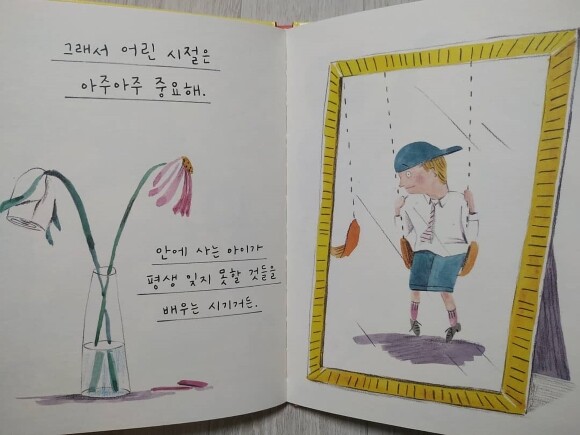 그래서 어린 시절은
아주아주 중요해.
안에 사는 아이가
평생 잊지 못할 것들을
배우는 시기거든.